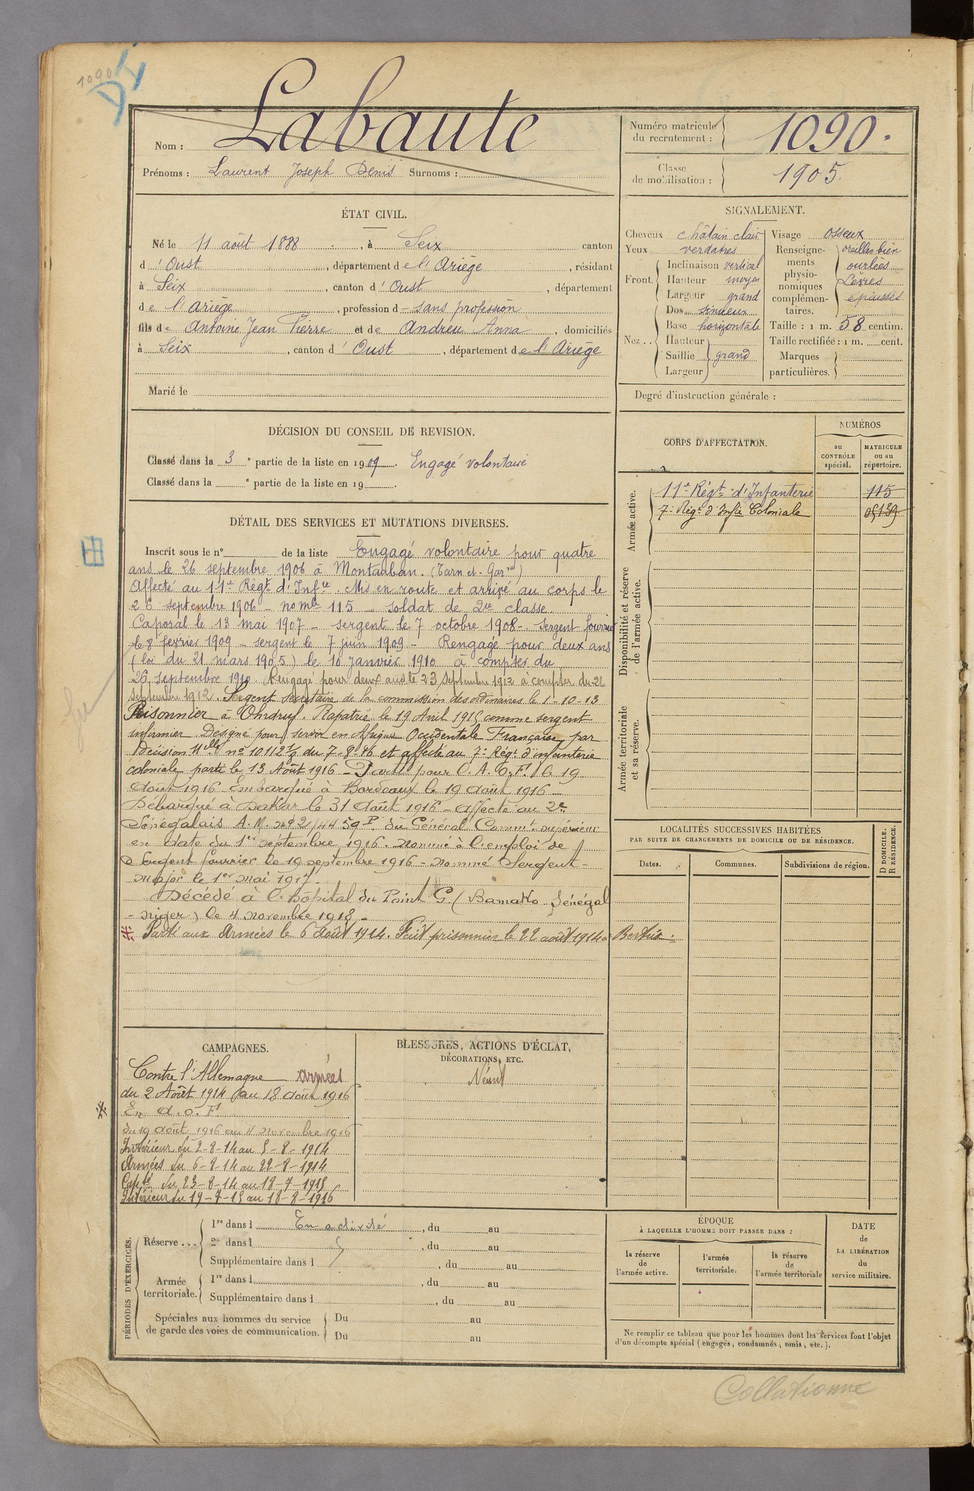 1090
Nom : Labaute
Prénoms : Laurent Joseph Denis Surnoms :
Numéro matricule du recrutement : 1090.
Classe de mobilisation : 1905.
ÉTAT CIVIL.
Né le 11 août 1888, à Seix canton
d'Oust, département de l'Ariège, résidant
à Seix, canton d'Oust, département
de l'Ariège, profession d sans profession
fils de Antoine Jean Pierre et de Andreu Anna, domiciliés
à Seix, canton d'Oust, département de l'Ariège
Marié le
SIGNALEMENT.
Cheveux châtain clair
Yeux verdâtres
Front. Inclinaison vertical
Hauteur moyen
Largeur grand
Nez.. Dos sinueux
Base horizontale
Hauteur
Saillie grand
Largeur
Visage osseux
Renseignements physionomiques complémentaires. oreilles bien
ourlées
Lèvres
épaisses
Taille : 1 m. 58 centim.
Taille rectifiée : 1 m. cent.
Marques particulières.
Degré d'instruction générale :
DÉCISION DU CONSEIL DE REVISION.
Classé dans la 3e partie de la liste en 1909. Engagé volontaire
Classé dans la e partie de la liste en 19
CORPS D'AFFECTATION.
NUMÉROS
au CONTRÔLE spécial.
MATRICULE ou au répertoire.
Armée active.
11e Régt d'Infanterie 115
7e Régt d'Infie Coloniale
Disponibilité et réserve de l'armée active.
Armée territoriale et sa réserve.
DÉTAIL DES SERVICES ET MUTATIONS DIVERSES.
Inscrit sous le n° de la liste Engagé volontaire pour quatre
ans le 26 septembre 1906 à Montauban. (Tarn et Garne)
Affecté au 11e Régt d'Infie. Mis en route et arrivé au corps le
26 septembre 1906 - no mle 115 - soldat de 2me classe.
Caporal le 13 mai 1907 - sergent le 7 octobre 1908 - Sergent fourrier
le 8 février 1909 - sergent le 7 juin 1909 - Rengagé pour deux ans
(loi du 21 mars 1905) le 10 janvier 1910 à compter du
26 septembre 1910. Rengagé pour deux ans le 23 septembre 1912 à compter du 26
septembre 1912. Sergent secrétaire de la commission des ordinaires le 1-10-13
Prisonnier à Ohrdruf. Rapatrié le 19 Avril 1915 comme sergent
infirmier. Désigné pour servir en Afrique Occidentale Française par
Décision Mlle n° 10112 1/8 du 7-8-16 et affecté au 7e Régt d'infanterie
coloniale parti le 13 Août 1916 - Parti pour l'A.O.F. le 19
Août 1916 Embarqué à Bordeaux le 19 août 1916 -
Débarqué à Dakar le 31 Août 1916 - affecté au 2e
Sénégalais A.M. n° 2/44 59 P du Général Commt supérieur
en date du 1er septembre 1916. nommé à l'emploi de
Sergent fourrier le 19 septembre 1916 - nommé Sergent-
major le 1er mai 1917.
Décédé à l'hôpital du Point G (Bamako Sénégal
- Niger) le 4 novembre 1918 -
Parti aux Armées le 6 août 1914. Fait prisonnier le 22 août 1914 à Bertrix.
LOCALITÉS SUCCESSIVES HABITÉES
PAR SUITE DE CHANGEMENTS DE DOMICILE OU DE RÉSIDENCE.
Dates.
Communes.
Subdivisions de région.
D DOMICILE.
R RÉSIDENCE.
CAMPAGNES.
Contre l'Allemagne Armées
du 2 Août 1914 au 18 août 1916
En A.O.F.
du 19 août 1916 au 4 novembre 1916
Intérieur du 2-8-14 au 5-8-1914
Armées du 6-8-14 au 22-8-1914
Capté du 23-8-14 au 18-7-1915
Intérieur du 19-7-15 au 18-8-1916
BLESSURES, ACTIONS D'ÉCLAT,
DÉCORATIONS, ETC.
Néant
PÉRIODES D'EXERCICES.
Réserve...
1re dans l En activité, du au
2e dans l, du au
Supplémentaire dans l, du au
Armée territoriale.
1re dans l, du au
Supplémentaire dans l, du au
Spéciales aux hommes du service de garde des voies de communication.
Du au
Du au
ÉPOQUE
À LAQUELLE L'HOMME DOIT PASSER DANS :
la réserve de l'armée active.
l'armée territoriale.
la réserve de l'armée territoriale
DATE de LA LIBÉRATION du service militaire.
Ne remplir ce tableau que pour les hommes dont les services font l'objet
d'un décompte spécial (engagés, condamnés, omis, etc.).
Collationné